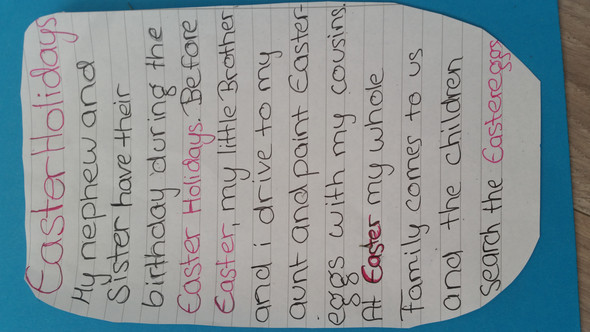 Easter Holidays
My nephew and
Sister have their
birthday during the
Easter Holidays. Before
Easter, my little Brother
and i drive to my
aunt and paint Easter-
eggs with my cousins.
At Easter my whole
Family comes to us
and the children
search the Eastereggs